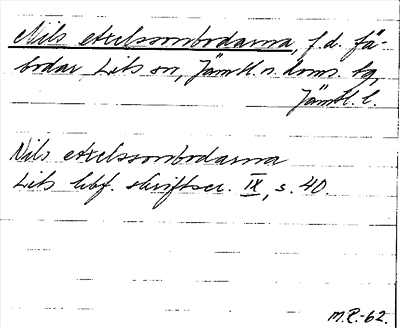 Nils Axelssonbodarna, f.d. fä-
bodar Lits sn, Jämtl. n. doms. tg,
Jämtl. l.
Nils Axelssonbodarna
Lits hbf. skriftser. IX, s. 40.
M.P.-62.